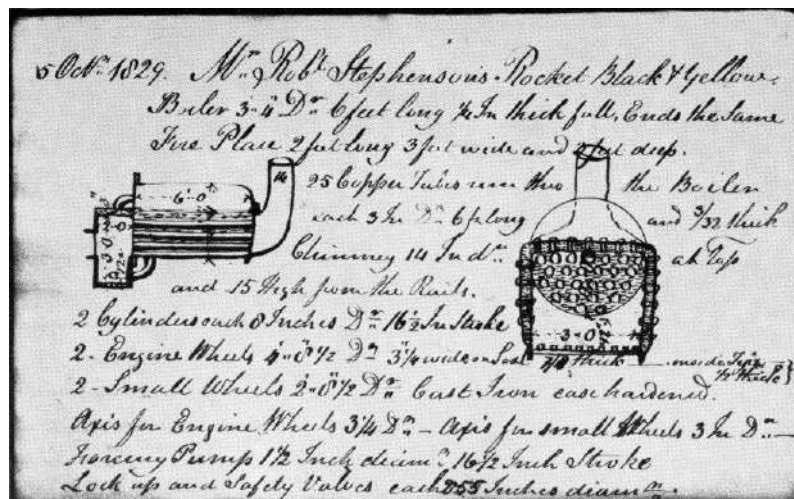 5 Octr. 1829. Mr. Robt. Stephenson's Rocket Black & Yellow.
Boiler 3-4 Dr. 6 feet long ¼ In thick full, Ends the Same
Fire Place 2 feet long 3 feet wide and 2 feet deep.
25 Copper Tubes run thro the Boiler
each 3 In Dr. 6 ft long and 3/32 thick
Chimney 14 In dr. at Top
and 15 High from the Rails.
2 Cylinders each 8 Inches Dr. 16½ In Stroke
2 - Engine Wheels 4"-8½ Dr. 3¼ wide on
2 - Small Wheels 2"-8½ Dr. Cast Iron case hardened.
Axis for Engine Wheels 3¼ Dr. - Axis for small Wheels 3 In Dr.
Forcing Pump 1½ Inch diamr. 16½ Inch Stroke
Lock up and Safety Valves each Inches diamr.
6-0
14
3-0
3-0
thick
inside
½ thick